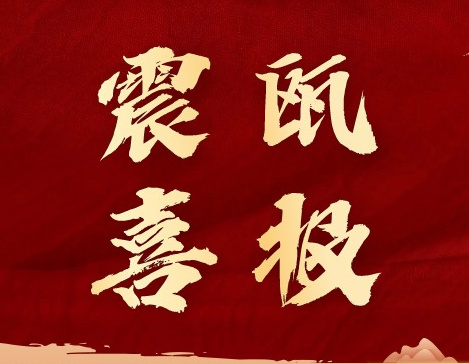 震瓯
喜报